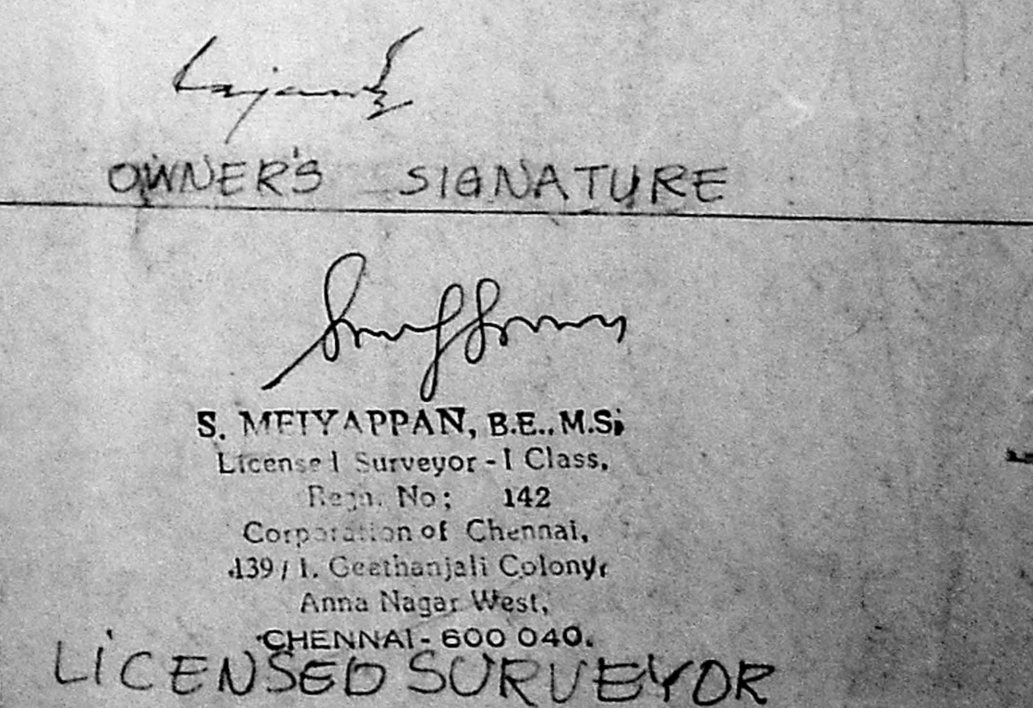 OWNER'S SIGNATURE
S. MEIYAPPAN, B.E., M.S;
Licensed Surveyor - I Class,
Regn. No; 142
Corporation of Chennai,
139/1. Geethanjali Colony,
Anna Nagar West,
CHENNAI - 600 040.
LICENSED SURVEYOR